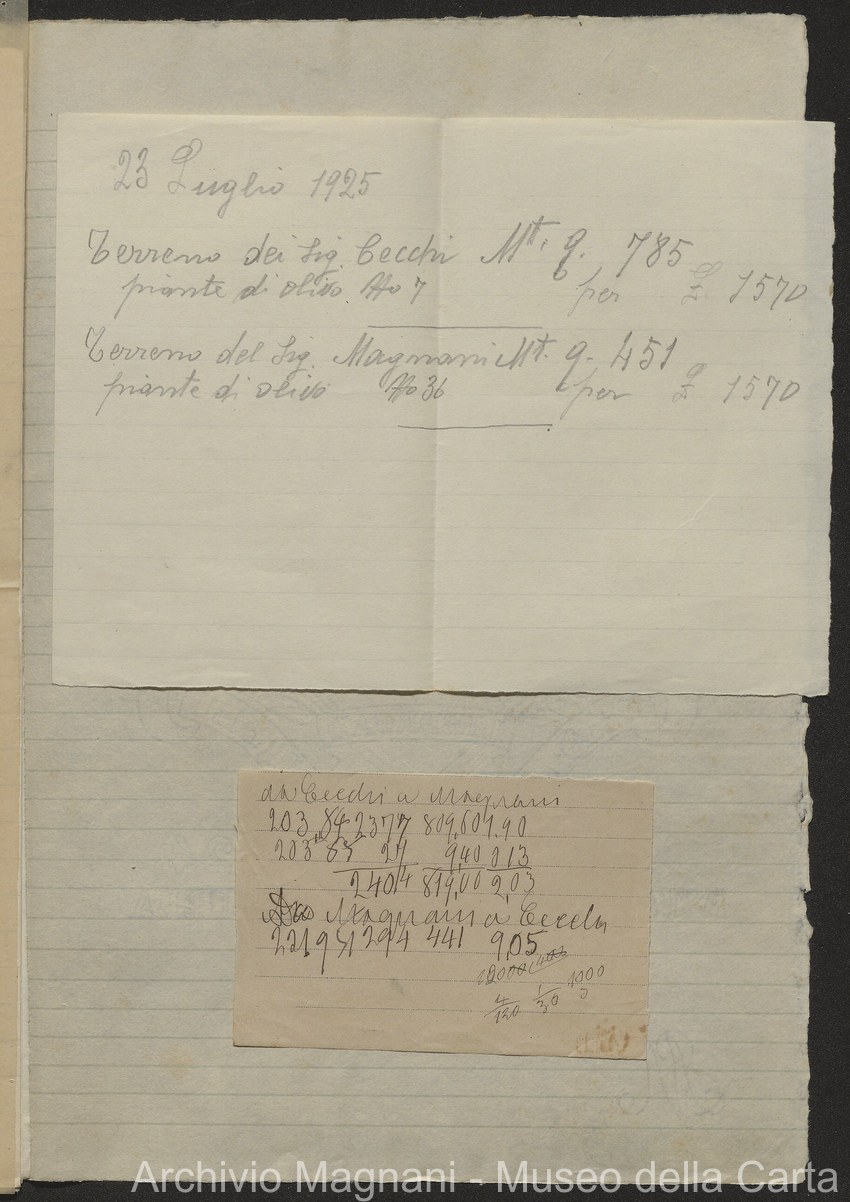 23 Luglio 1925
Terreno dei Sig. Cecchi Mt. q. 785
piante di olivo No 7 per £ 1570
Terreno del Sig. Magnani Mt. q. 451
piante di olivo No 36 per £ 1570
da Cecchi a Magnani
203 84 2377 809,60 1.90
203 85 27 9,40 013
2404 819,00 2,03
Da Magnani a Cecchi
221 951 294 441 9,05
4/120 1/30 1000
Archivio Magnani - Museo della Carta